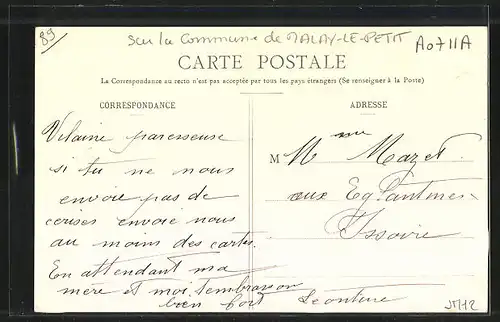 89
sur la Commune de MALAY-LE-PETIT
A0711A
CARTE POSTALE
La Correspondance au recto n'est pas acceptée par tous les pays étrangers (Se renseigner à la Poste)
CORRESPONDANCE
Vilaine paresseuse
si tu ne nous
envoie pas de
cerises envoie nous
au moins des cartes.
En attendant ma
mère et moi t'embrassons
bien fort Léontine
ADRESSE
M Mme Mazet
aux Eglantines
Issoire